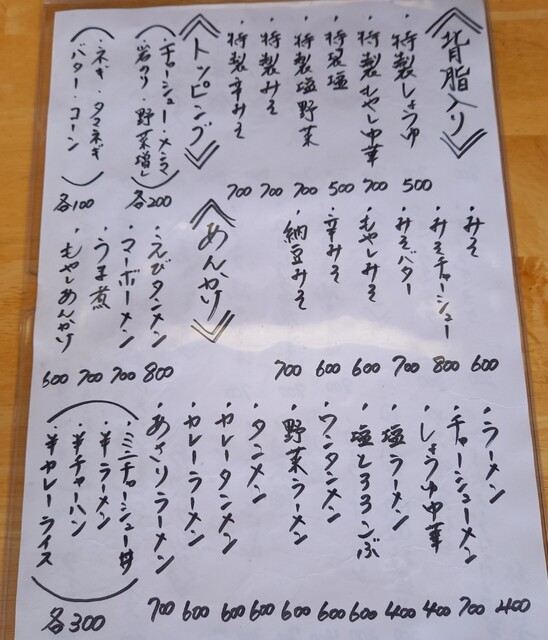 ≪背脂入り≫
・特製しょうゆ 500
・特製もやし中華 700
・特製塩 500
・特製塩野菜 700
・特製みそ 700
・特製辛みそ 700
≪トッピング≫
(・チャーシュー・メンマ
・岩のり・野菜増し) 各200
(・ネギ・タマネギ
・バター・コーン) 各100
・みそ 600
・みそチャーシュー 800
・みそバター 700
・もやしみそ 600
・辛みそ 600
・納豆みそ 700
≪あんかけ≫
・えびタンメン 800
・マーボーメン 700
・うま煮 700
・もやしあんかけ 600
・ラーメン 400
・チャーシューメン 700
・しょうゆ中華 400
・塩ラーメン 400
・塩とろろこんぶ 600
・ワンタンメン 600
・野菜ラーメン 600
・タンメン 600
・カレータンメン 600
・カレーラーメン 600
・あさりラーメン 700
(・ミニチャーシュー丼
・半ラーメン
・半チャーハン
・半カレーライス) 各300